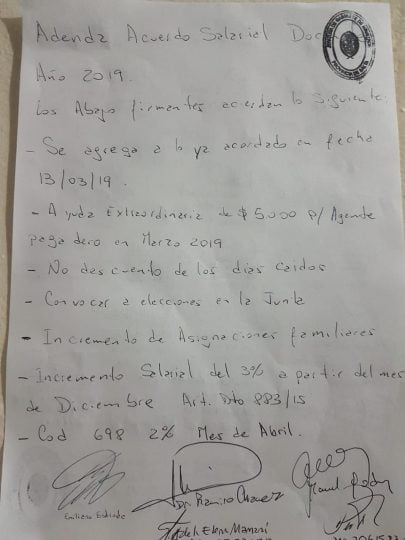 Adenda Acuerdo Salarial Doc
Año 2019.
Los Abajo firmantes acuerdan lo Siguiente:
- Se agrega a lo ya acordado en fecha
13/03/19.
- Ayuda Extraordinaria de $5.000 p/ Agente
pagadero en Marzo 2019
- No descuento de los días caidos
- Convocar a elecciones en la Junta
- Incremento de Asignaciones familiares
- Incremento Salarial del 3% a partir del mes
de Diciembre Art. Dto 883/15
- Cod 698 2% Mes de Abril.
Emiliano
Dr. Ramiro
Elena Mamani